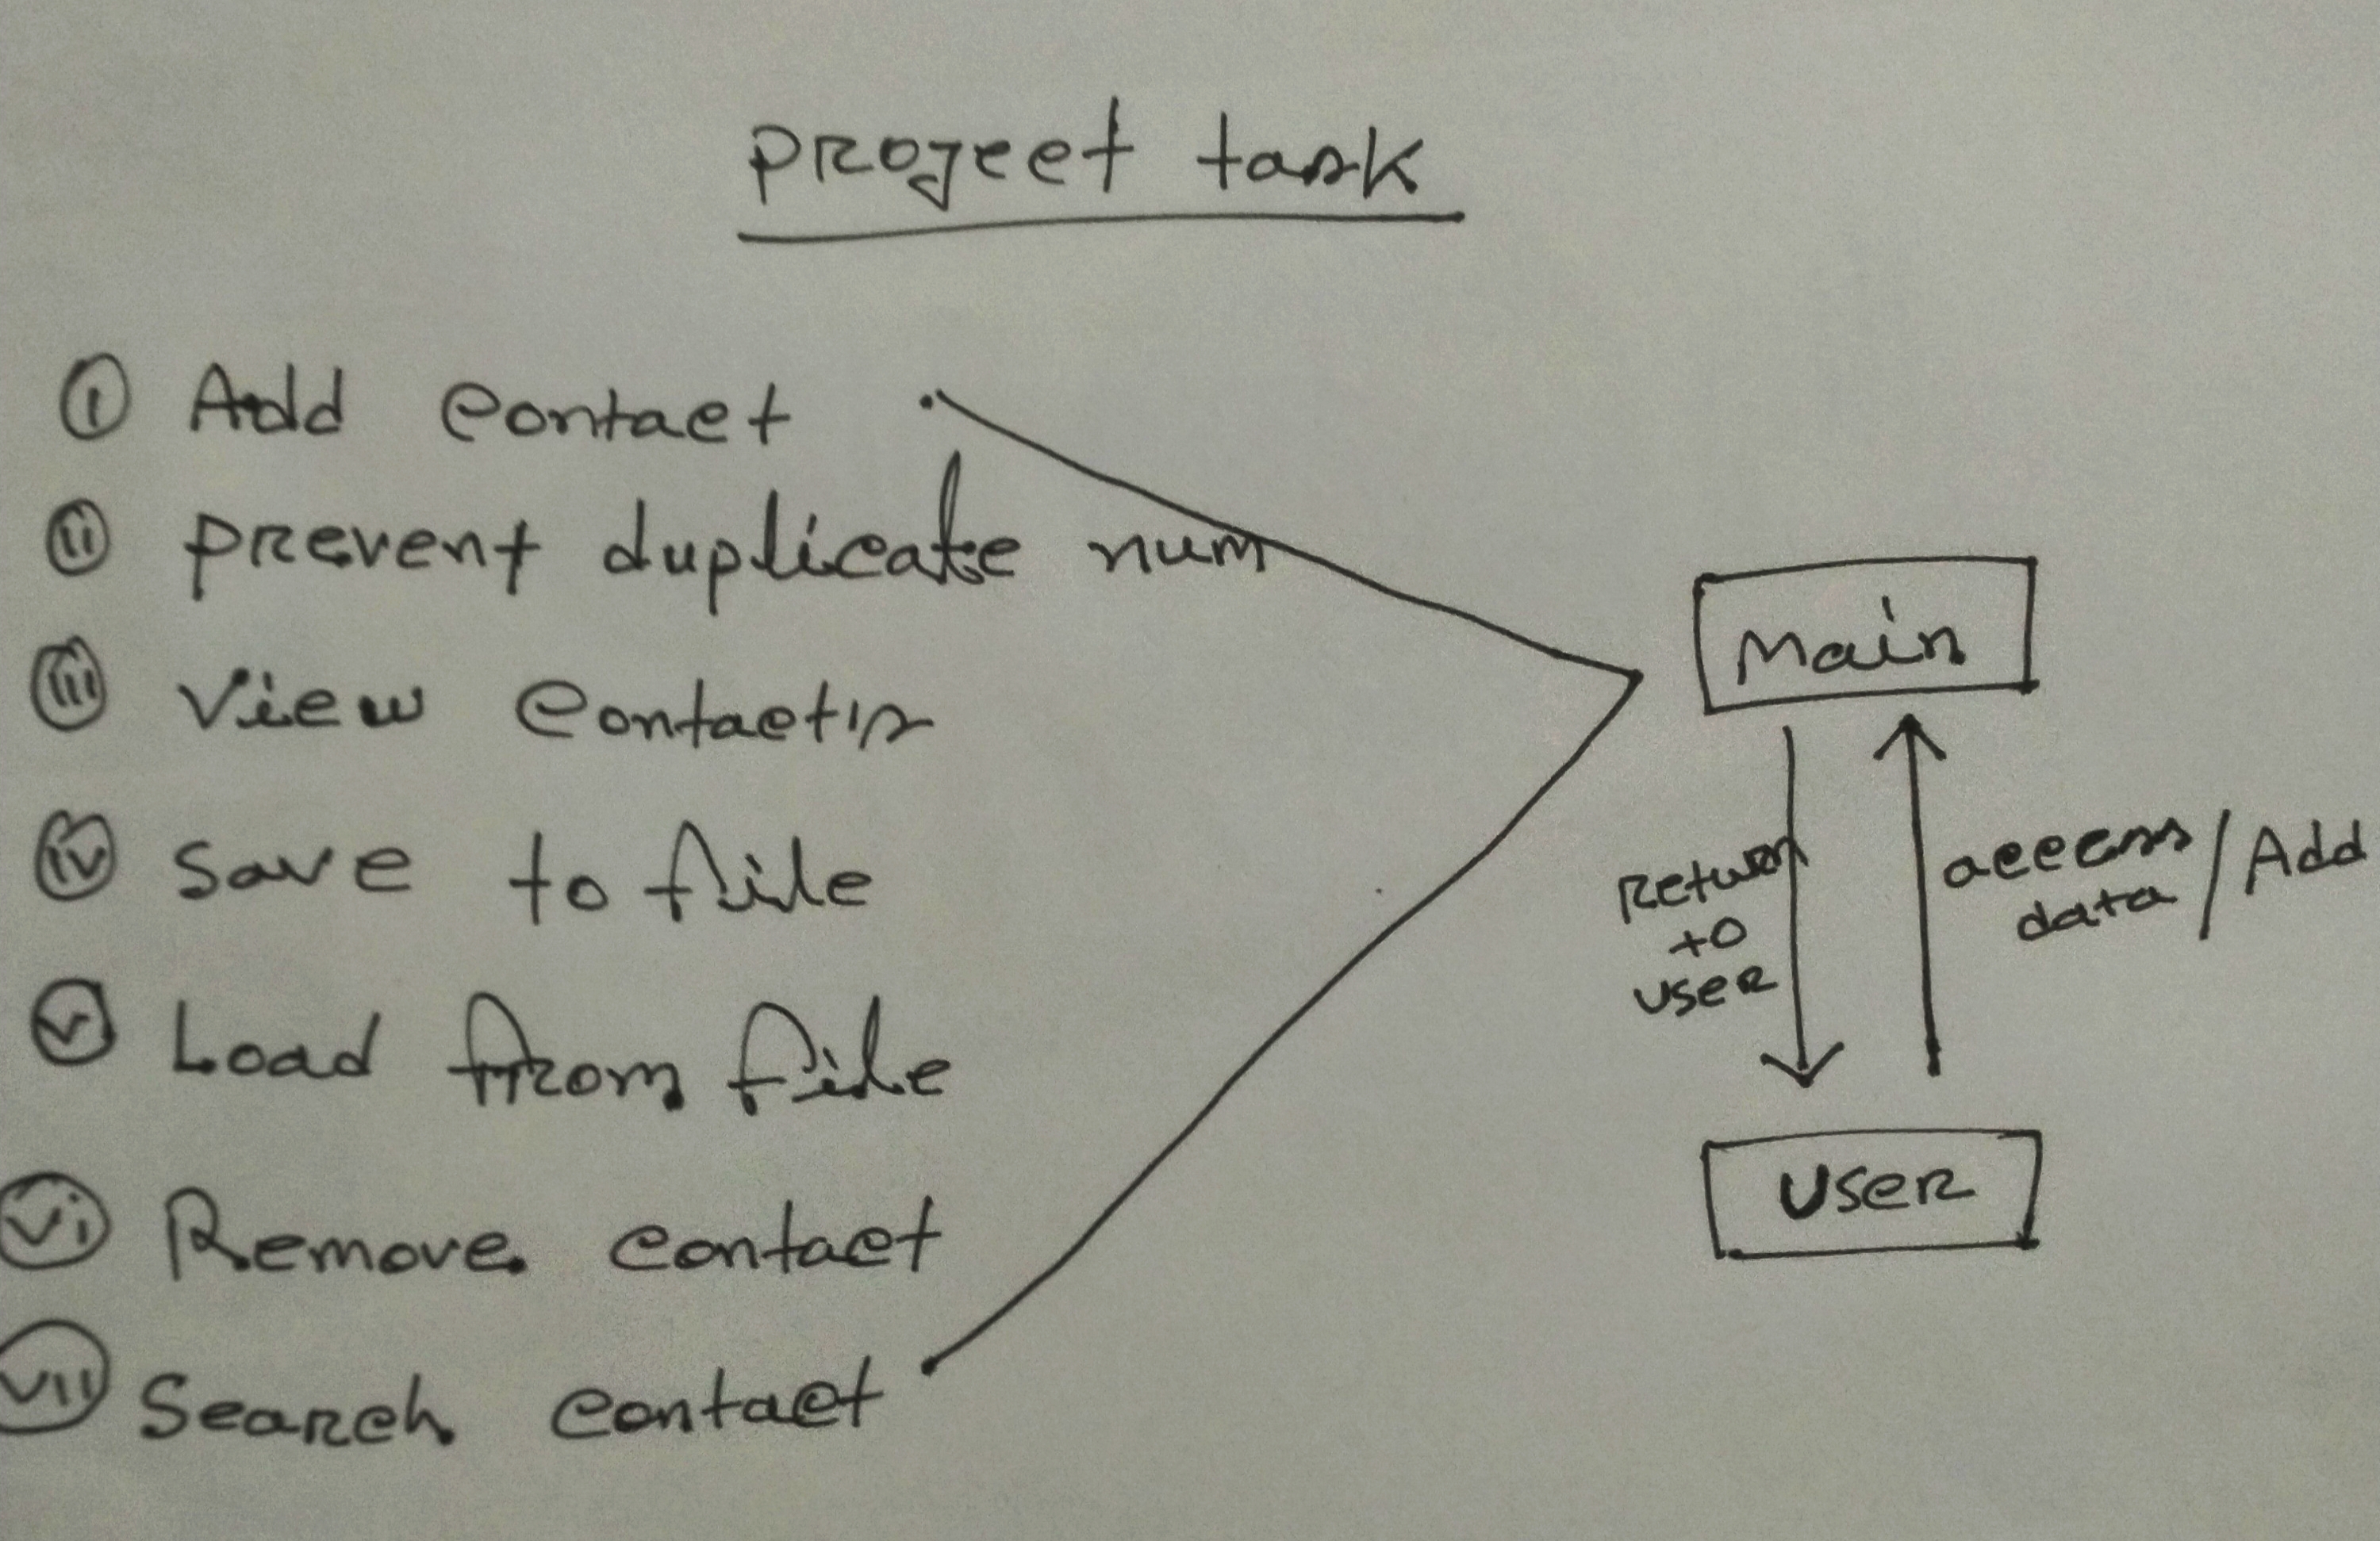 project task
i Add contact
ii prevent duplicate num
iii View contact's
iv Save to file
v Load from file
vi Remove contact
vii Search contact
Main
Return
to
user
access
data / Add
User